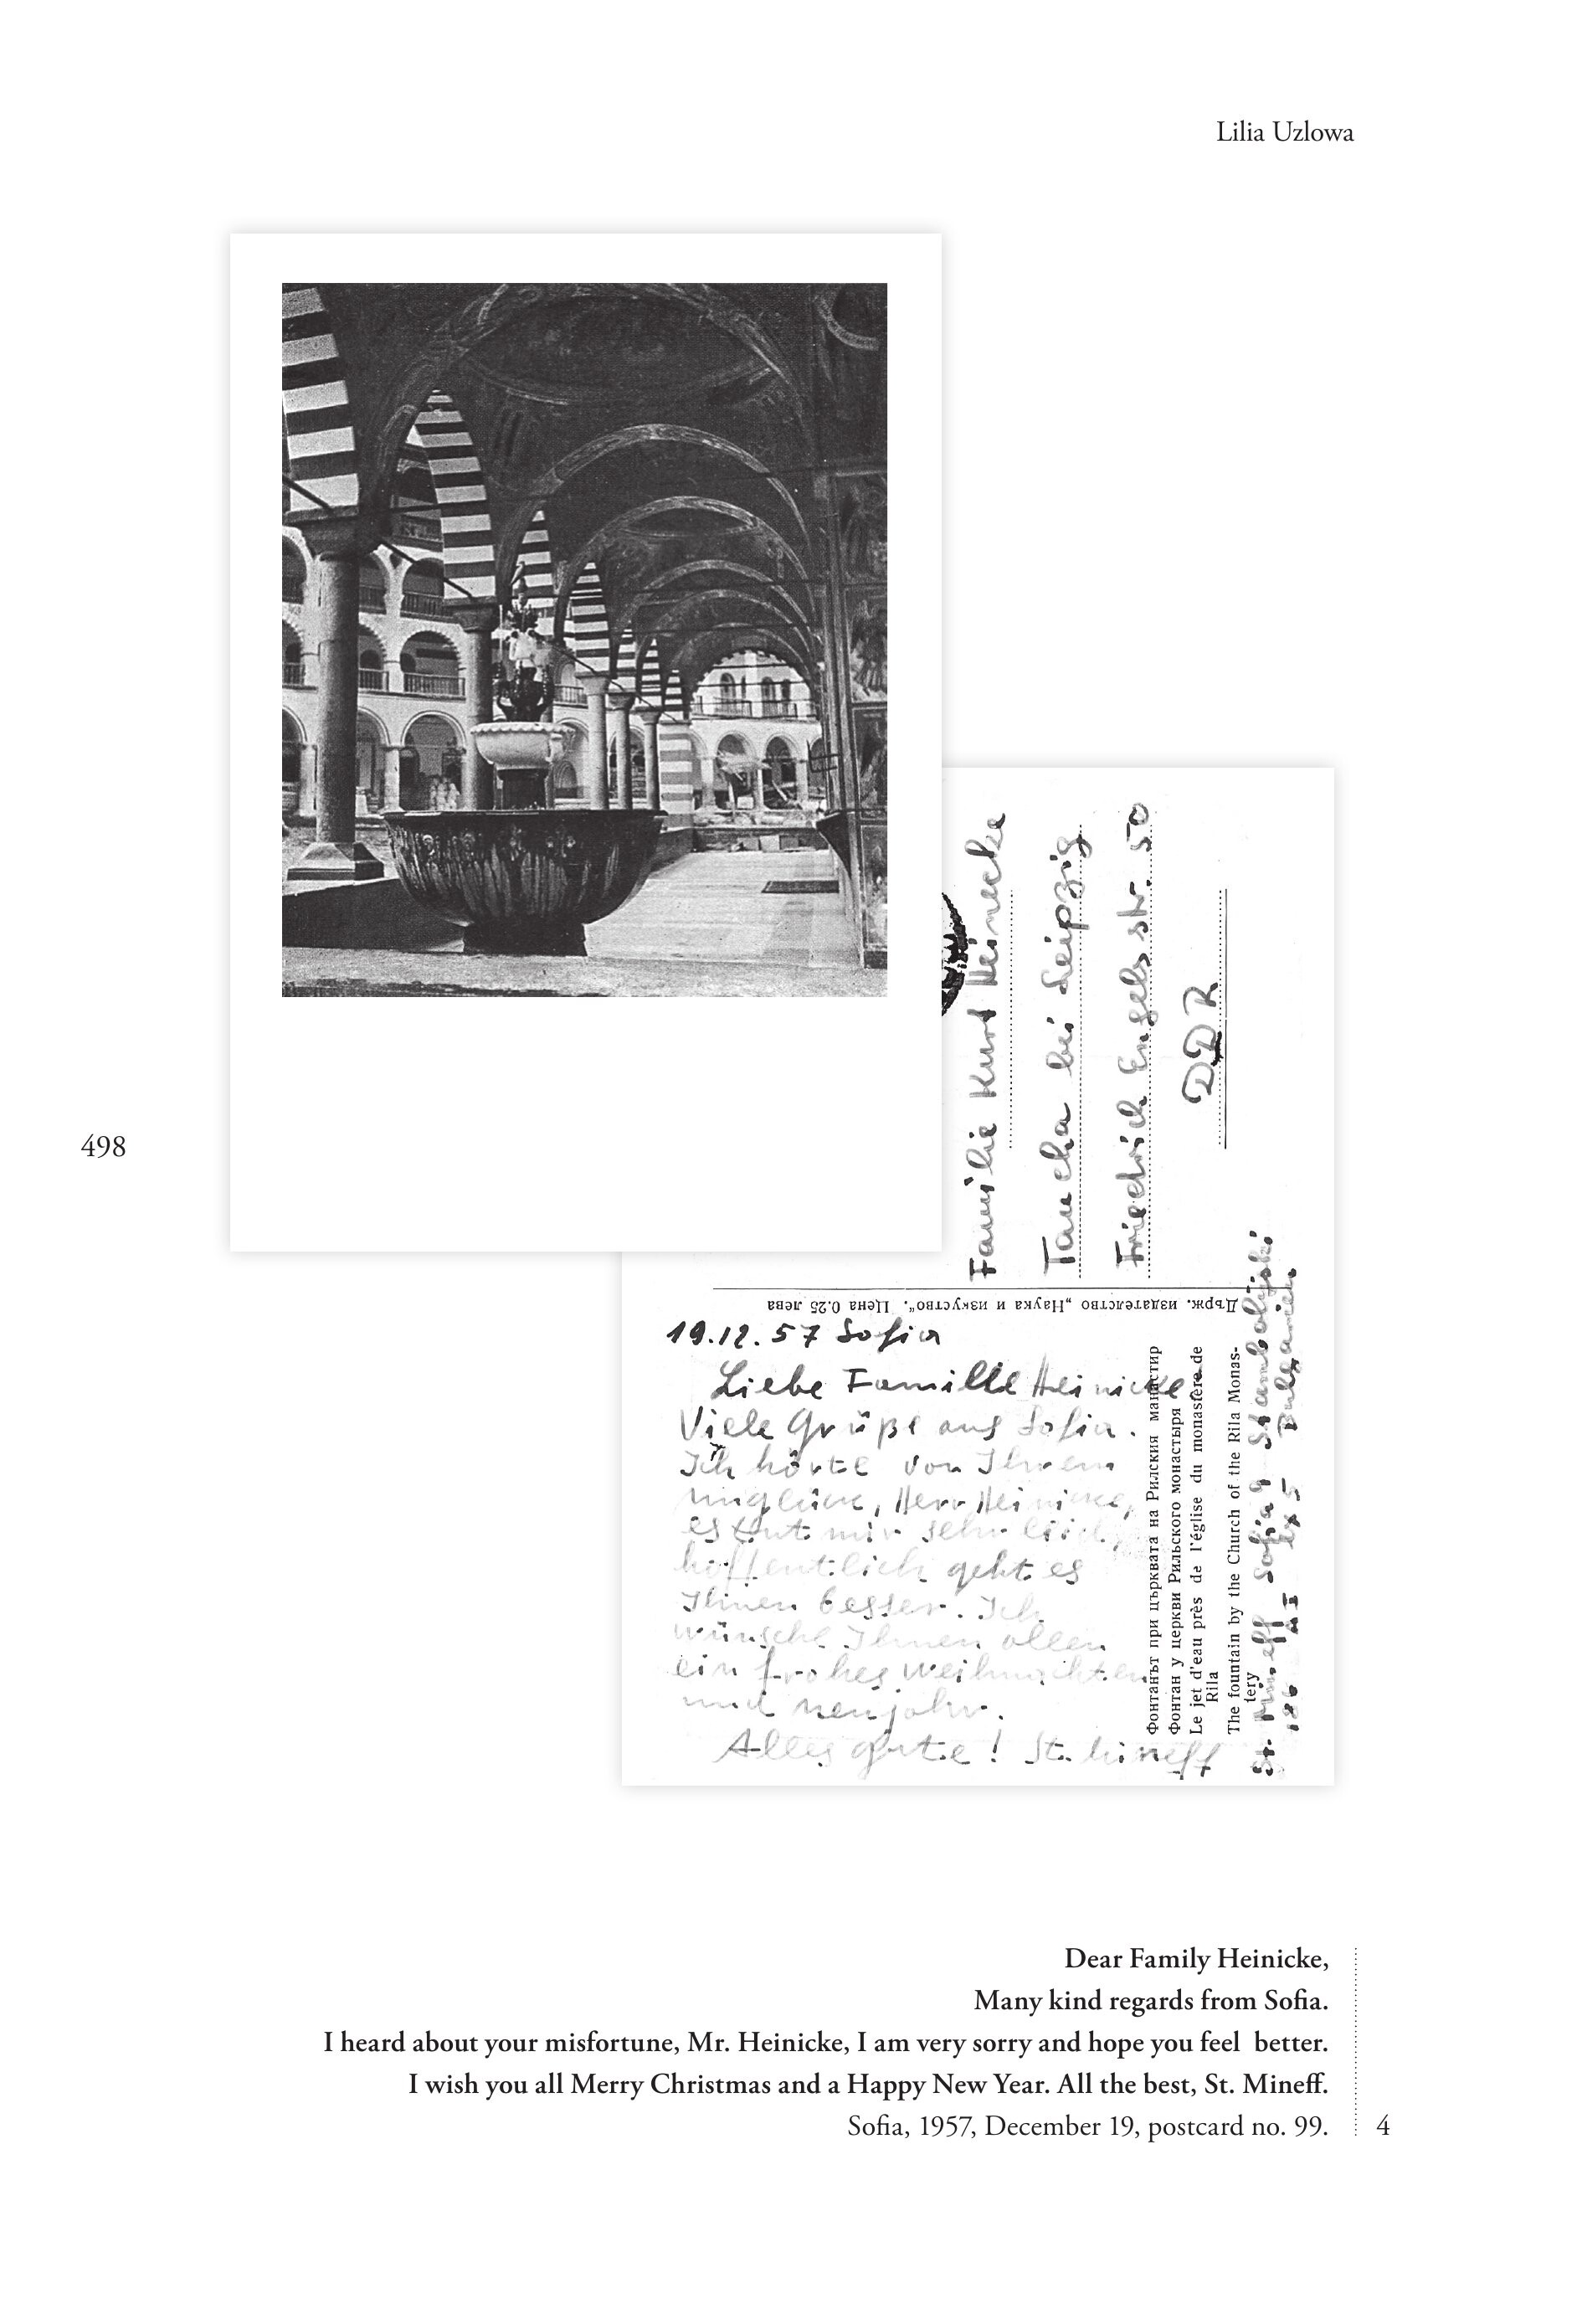 Lilia Uzlowa
498
Familie Kurt Heinicke
Taucha bei Leipzig
Friedrich Engels str. 50
DDR
Държ. издателство „Наука и изкуство“. Цена 0.25 лева
19.12.57 Sofia
Liebe Familie Heinicke
Viele Grüße aus Sofia.
Ich hörte von Ihrem
unglück, Herr Heinicke,
es tut mir sehr leid,
hoffentlich geht es
Ihnen besser. Ich
wünsche Ihnen allen
ein frohes Weihnachten
und neujahr.
Alles gute! St. Mineff
Фонтанът при църквата на Рилския манастир
Фонтан у церкви Рильского монастыря
Le jet d'eau près de l'église du monastère de
Rila
The fountain by the Church of the Rila Monas-
tery
St. Mineff Sofia 9 Stambolijski
186 Bulgarien
Dear Family Heinicke,
Many kind regards from Sofia.
I heard about your misfortune, Mr. Heinicke, I am very sorry and hope you feel better.
I wish you all Merry Christmas and a Happy New Year. All the best, St. Mineff.
Sofia, 1957, December 19, postcard no. 99.
4